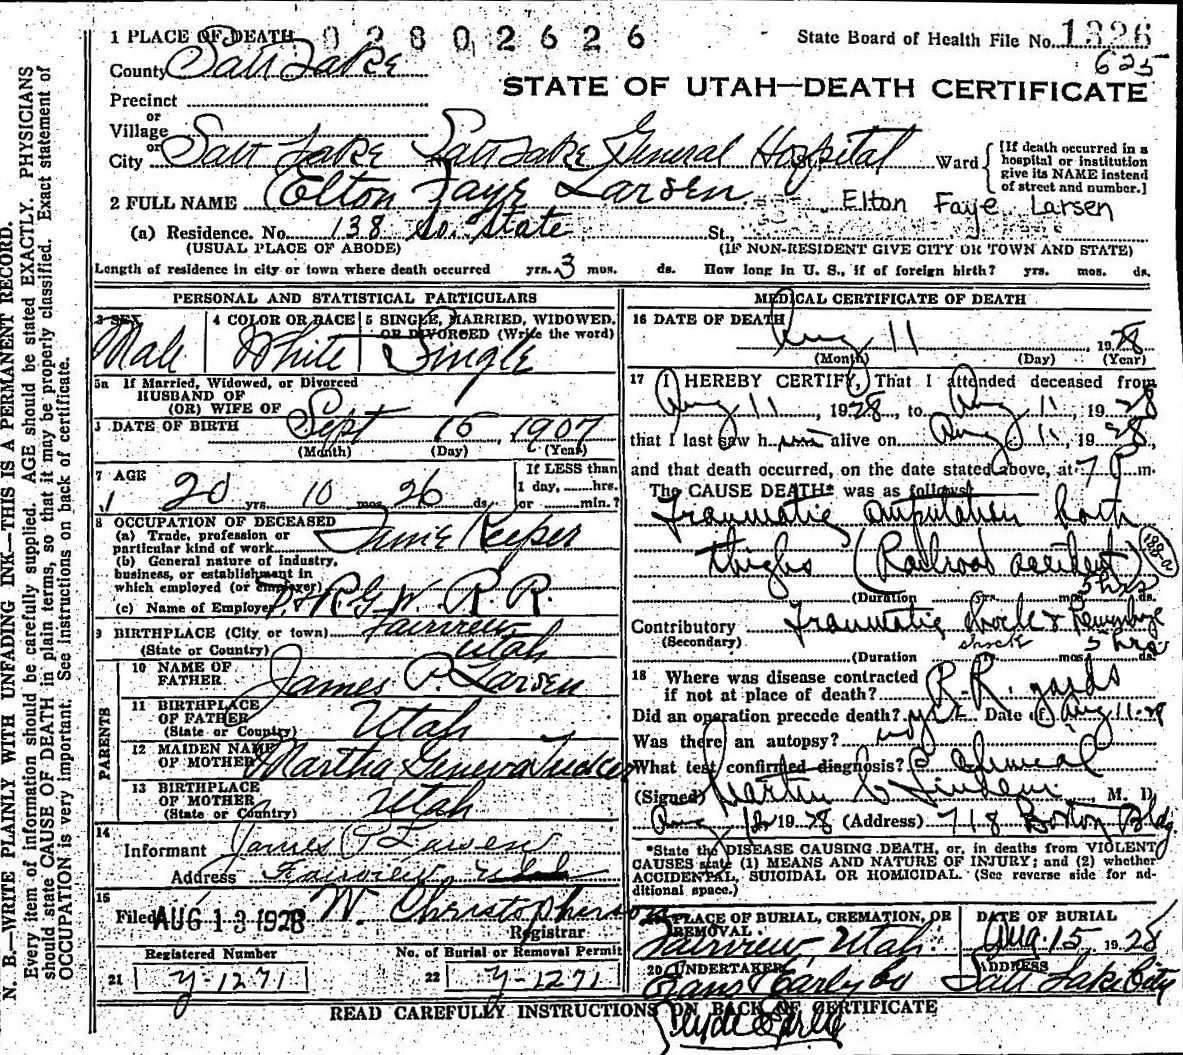 1 PLACE OF DEATH 02802626
State Board of Health File No. 1326
County Salt Lake
625
STATE OF UTAH—DEATH CERTIFICATE
Precinct
or
Village
or
City Salt Lake Salt Lake General Hospital Ward
[If death occurred in a hospital or institution give its NAME instead of street and number.]
2 FULL NAME Elton Faye Larsen Elton Faye Larsen
(a) Residence. No. 138 So. State St.,
(USUAL PLACE OF ABODE) (IF NON-RESIDENT GIVE CITY OR TOWN AND STATE)
Length of residence in city or town where death occurred yrs. 3 mos. ds. How long in U. S., if of foreign birth? yrs. mos. ds.
PERSONAL AND STATISTICAL PARTICULARS
3 SEX 4 COLOR OR RACE 5 SINGLE, MARRIED, WIDOWED, OR DIVORCED (Write the word)
Male White Single
5a If Married, Widowed, or Divorced
HUSBAND OF
(OR) WIFE OF
6 DATE OF BIRTH Sept 15, 1907
(Month) (Day) (Year)
7 AGE
20 yrs. 10 mos. 26 ds.
If LESS than 1 day, hrs. or min.?
8 OCCUPATION OF DECEASED
(a) Trade, profession or particular kind of work Time Keeper
(b) General nature of industry, business, or establishment in which employed (or employer)
(c) Name of Employer D. & R.G.W. R.R.
9 BIRTHPLACE (City or town) Fairview
(State or Country) Utah
PARENTS
10 NAME OF FATHER James P. Larsen
11 BIRTHPLACE OF FATHER (State or Country) Utah
12 MAIDEN NAME OF MOTHER Martha Geneva Tucker
13 BIRTHPLACE OF MOTHER (State or Country) Utah
14
Informant James P Larsen
Address Fairview, Utah
15
Filed AUG 13 1928 W. Christopherson
Registrar
Registered Number No. of Burial or Removal Permit
21 y-1271 22 y-1271
MEDICAL CERTIFICATE OF DEATH
16 DATE OF DEATH Aug 11, 1928
(Month) (Day) (Year)
17 I HEREBY CERTIFY, That I attended deceased from
Aug 11, 1928, to Aug 11, 1928
that I last saw him alive on Aug 11, 1928,
and that death occurred, on the date stated above, at 7 P m.
The CAUSE DEATH* was as follows:
Traumatic amputation both
thighs (Railroad accident) 188a
5 hrs
(Duration yrs. mos. ds.
Contributory Traumatic shock & hemorrhage
(Secondary) shock 5 hrs
(Duration mos. ds.
18 Where was disease contracted
if not at place of death? R.R. yards
Did an operation precede death? yes Date of Aug 11-28
Was there an autopsy? no
What test confirmed diagnosis? Clinical
(Signed) Martin C Lindem M. D.
Aug 12 1928 (Address) 718 Boston Bldg.
*State the DISEASE CAUSING DEATH, or, in deaths from VIOLENT
CAUSES state (1) MEANS AND NATURE OF INJURY; and (2) whether
ACCIDENTAL, SUICIDAL OR HOMICIDAL. (See reverse side for additional space.)
19 PLACE OF BURIAL, CREMATION, OR REMOVAL DATE OF BURIAL
Fairview, Utah. Aug. 15, 1928
20 UNDERTAKER ADDRESS
Evans & Early Co Salt Lake City
Clyde Early
READ CAREFULLY INSTRUCTIONS ON BACK OF CERTIFICATE
N. B.—WRITE PLAINLY WITH UNFADING INK—THIS IS A PERMANENT RECORD.
Every item of information should be carefully supplied. AGE should be stated EXACTLY. PHYSICIANS
should state CAUSE OF DEATH in plain terms, so that it may be properly classified. Exact statement of
OCCUPATION is very important. See instructions on back of certificate.